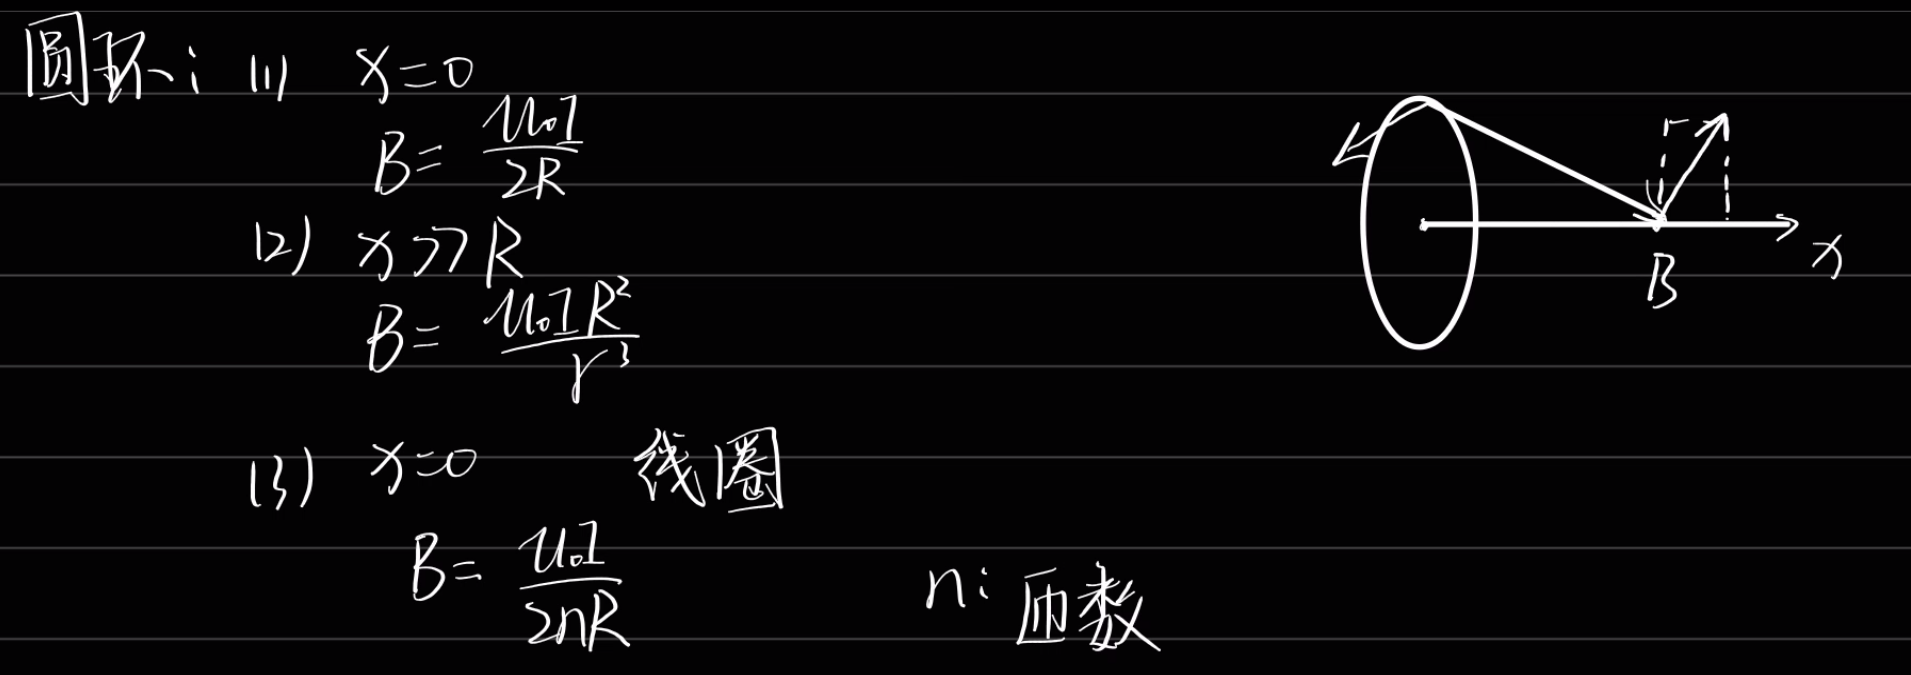 圆环: (1) x=0
B= μ₀I/2R
(2) x>>R
B= μ₀IR²/r³
(3) x=0 线圈
B= μ₀I/2nR n: 匝数
r
B
x